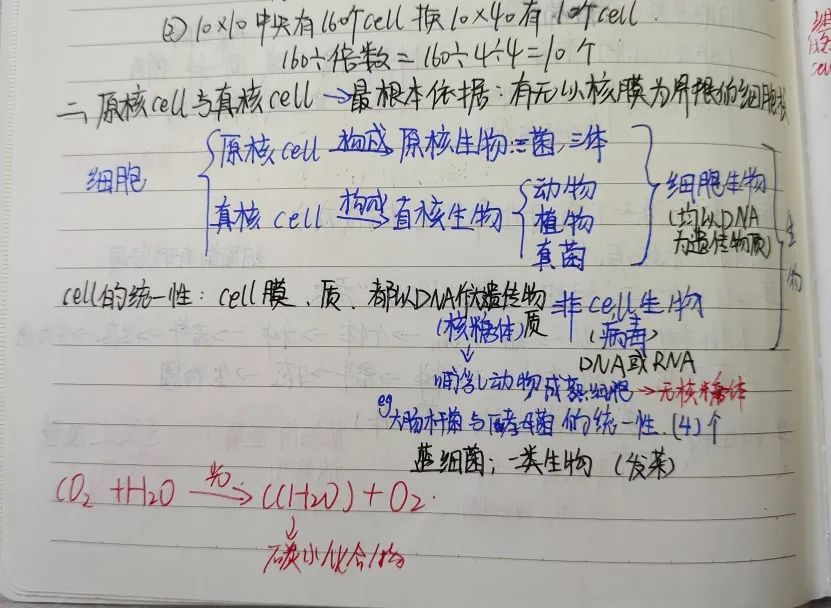 ② 10×10 中央有160个cell 换10×40有10个cell.
160÷倍数=160÷4÷4=10个
二、原核cell与真核cell→最根本依据:有无以核膜为界限的细胞核
细胞
原核cell 构成→ 原核生物:三菌,三体
真核cell 构成→ 真核生物
动物
植物
真菌
细胞生物
(均以DNA
为遗传物质)
生物
cell的统一性:cell膜、质、都以DNA作为遗传物质
(核糖体)
非cell生物
(病毒)
DNA或RNA
↓
哺乳动物成熟细胞→无核糖体
eg 大肠杆菌与酵母菌的统一性.(4)个
蓝细菌;一类生物 (发菜)
CO2+H2O 光→ (CH2O)+O2.
↓
碳水化合物